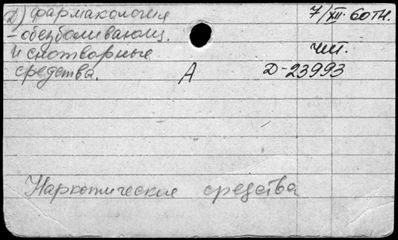 2) фармакология 7/XII. 60 тн.
– обезболивающ.
и снотворные чит.
средства. А Д-23993
Наркотические средства